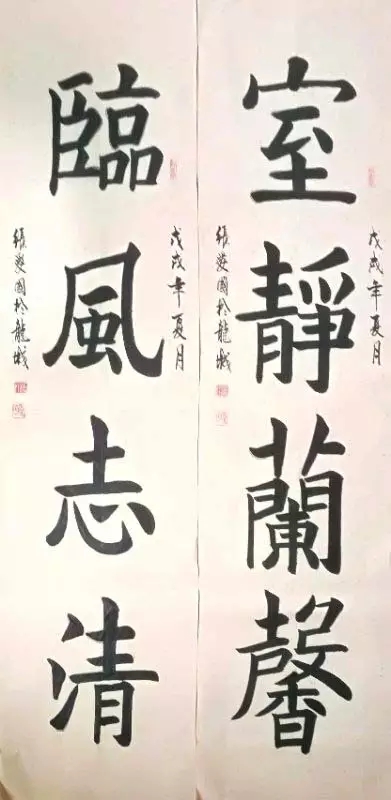 室靜蘭馨
戊戌年夏月
張愛國於龍城
臨風志清
戊戌年夏月
張愛國於龍城